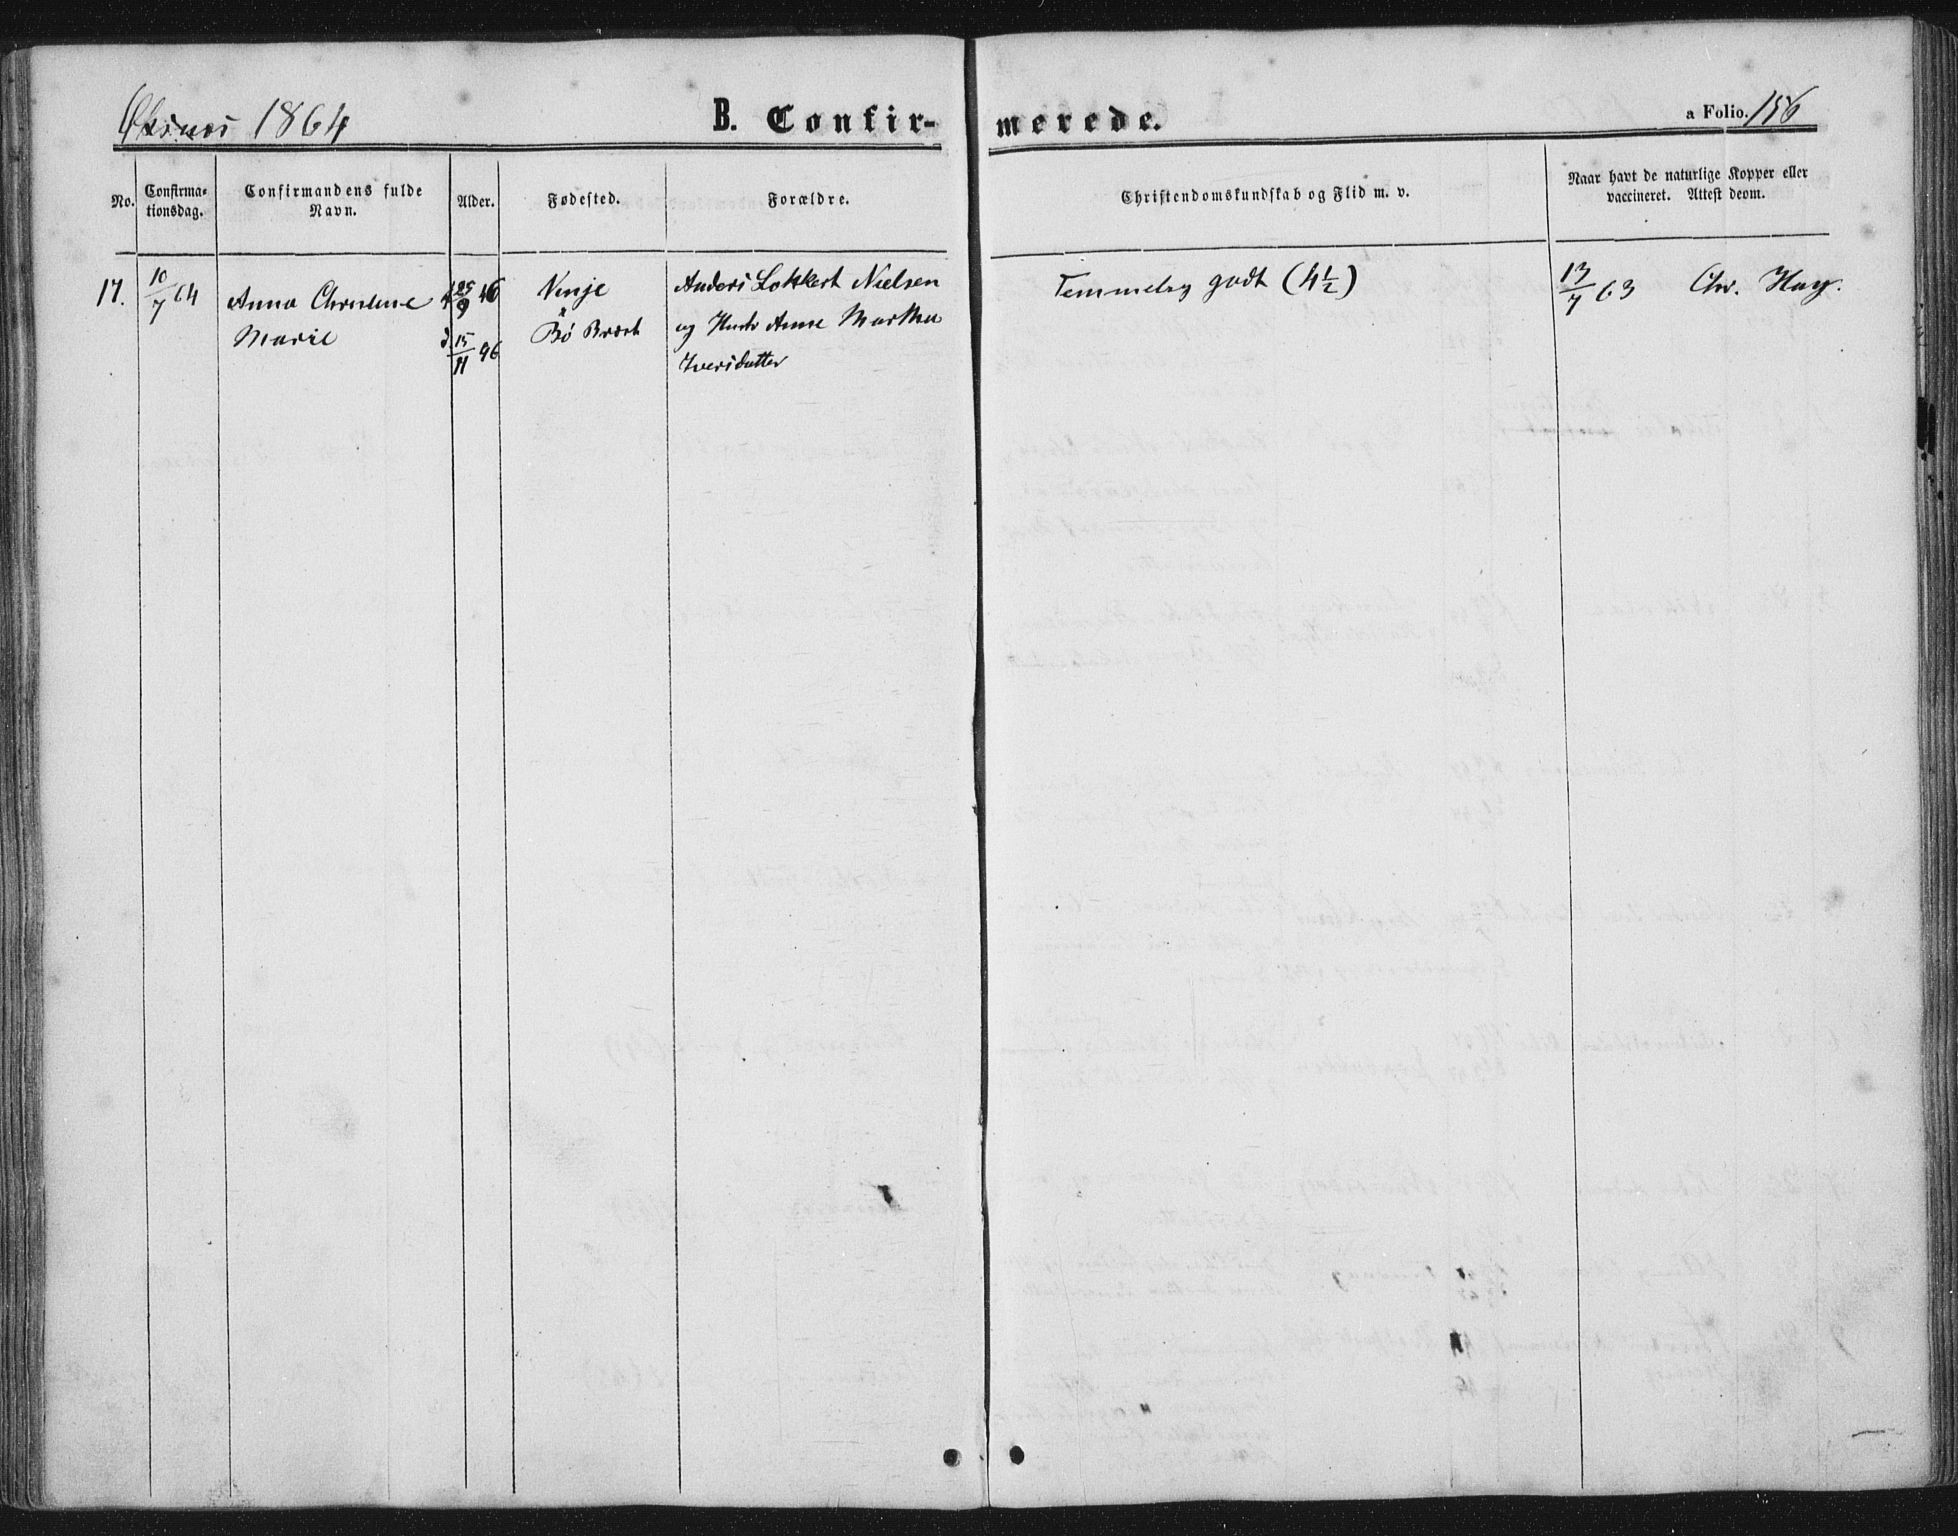 Øksnes 1864
B. Confir-
merede.
a Folio. 156
No.
Confirma-
tionsdag.
Confirmandens fulde
Navn.
Alder.
Fødested.
Forældre.
Christendomskundskab og Flid m. v.
Naar havt de naturlige Kopper eller
vaccineret. Attest deom.
17.
10/7 64
Anna Christine
Marie
25/9 46
d. 15/11 46
Ninje
Bø
Anders Lokkert Nielsen
og Hustr Anne Martha
Iversdatter
Temmelig godt (4½)
13/7 63
Chr. Hay.